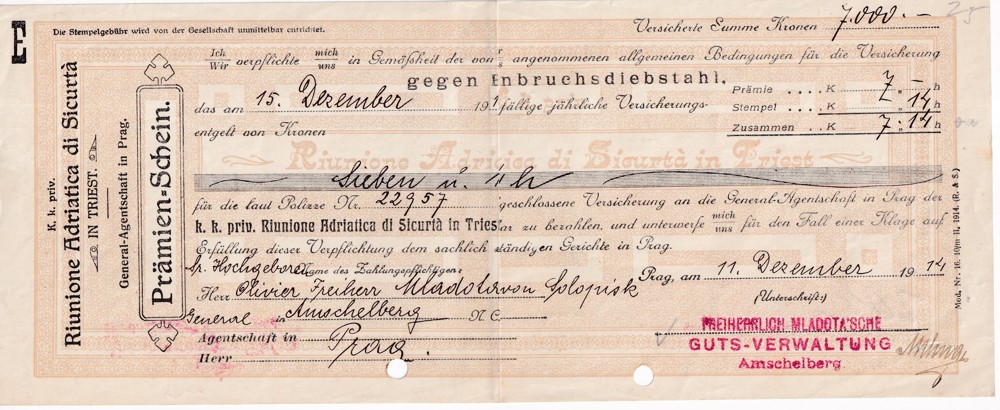 E
Die Stempelgebühr wird von der Gesellschaft unmittelbar entrichtet.
Versicherte Summe Kronen 7.000.—
K. k. priv.
Riunione Adriatica di Sicurtà
IN TRIEST.
General-Agentschaft in Prag.
Prämien-Schein.
Ich
Wir verpflichte mich
uns in Gemäßheit der von angenommenen allgemeinen Bedingungen für die Versicherung
gegen Einbruchsdiebstahl.
Prämie .... K 7 — h
das am 15. Dezember 191 fällige jährliche Versicherungs-
Stempel .... K „ 14 h
entgelt von Kronen
Zusammen .. K 7 : 14 h
Riunione Adriatica di Sicurtà in Triest
Sieben u. 14 h
für die laut Polizze Nr. 22957 geschlossene Versicherung an die General-Agentschaft in Prag der
k. k. priv. Riunione Adriatica di Sicurtà in Triest zu bezahlen, und unterwerfe mich
uns für den Fall einer Klage auf
Erfüllung dieser Verpflichtung dem sachlich ständigen Gerichte in Prag.
Sr. Hochgeboren
Name des Zahlungspflichtigen:
Prag, am 11. Dezember 1914
Herr Olivier Freiherr Mladota von Solopisk
(Unterschrift:)
General in Amschelberg N C
Agentschaft in Prag.
Herr
FREIHERRLICH MLADOTA'SCHE
GUTS-VERWALTUNG
Amschelberg
Mod. Nr. 16. 10m II. 1914. (R. & S.)